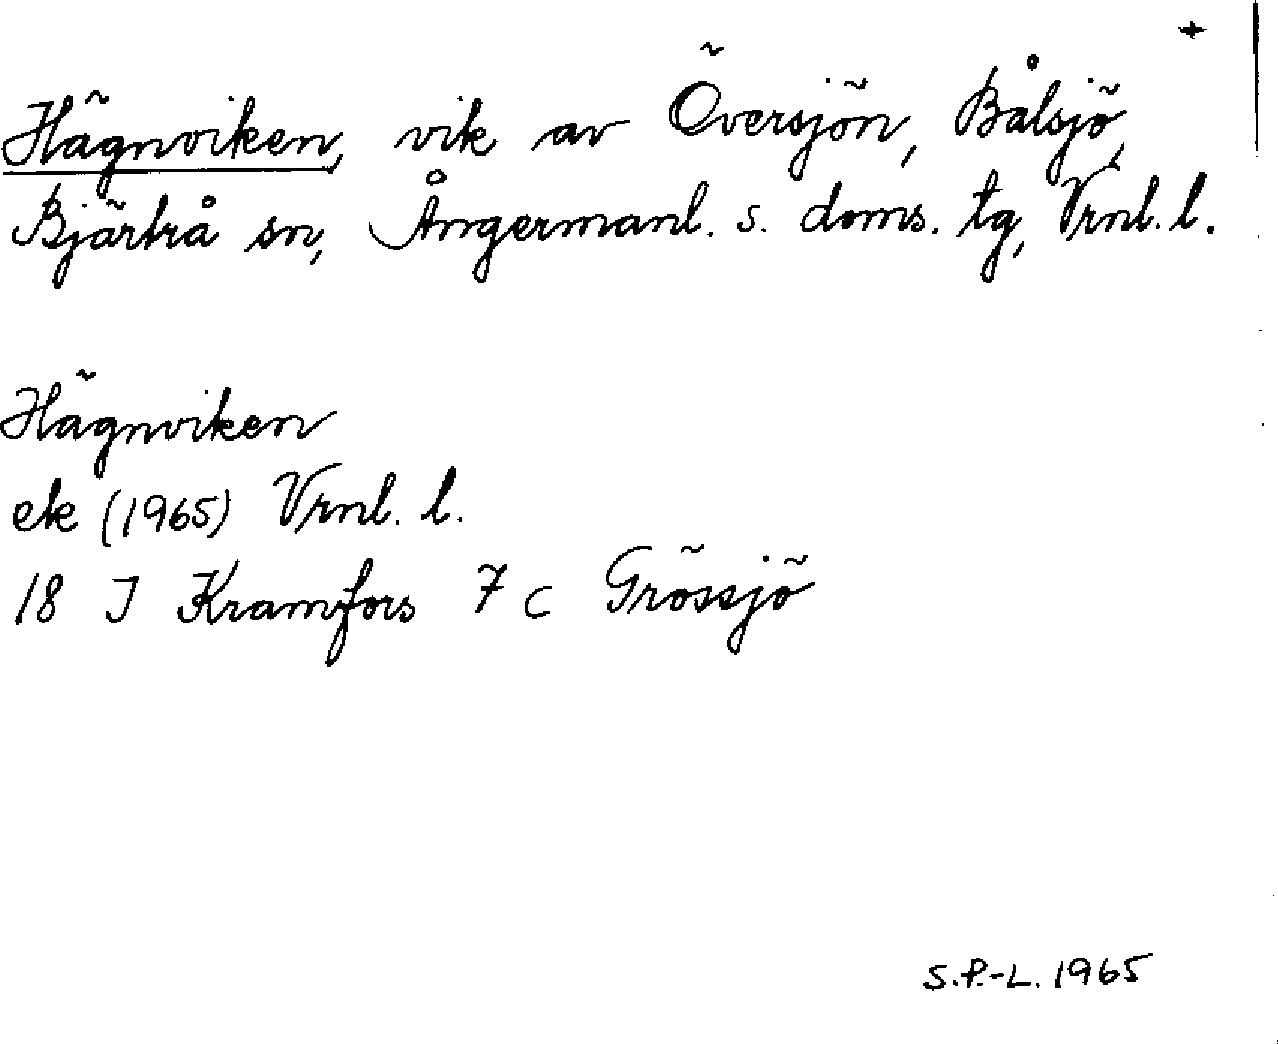 +
Hägnviken, vik av Översjön, Bålsjö,
Bjärtrå sn, Ångermanl. s. doms. tg, Vrnl. l.
Hägnviken
ek (1965) Vrnl. l.
18 J Kramfors 7 c Grössjö
S.P.-L. 1965